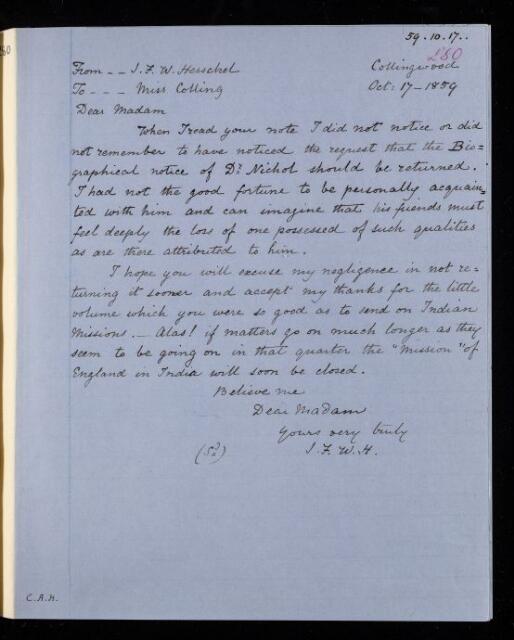 59.10.17..
280
From -- J.F.W. Herschel
Collingwood
To --- Miss Colling
Oct: 17-1859
Dear Madam
When I read your note I did not notice or did
not remember to have noticed the request that the Bio=
graphical notice of Dr. Nichol should be returned.
I had not the good fortune to be personally acquain=
ted with him and can imagine that his friends must
feel deeply the loss of one possessed of such qualities
as are there attributed to him.
I hope you will excuse my negligence in not re=
turning it sooner and accept my thanks for the little
volume which you were so good as to send on Indian
Missions. - Alas! if matters go on much longer as they
seem to be going on in that quarter the "Mission" of
England in India will soon be closed.
Believe me
Dear Madam
Yours very truly
J.F.W.H.
C.A.H.